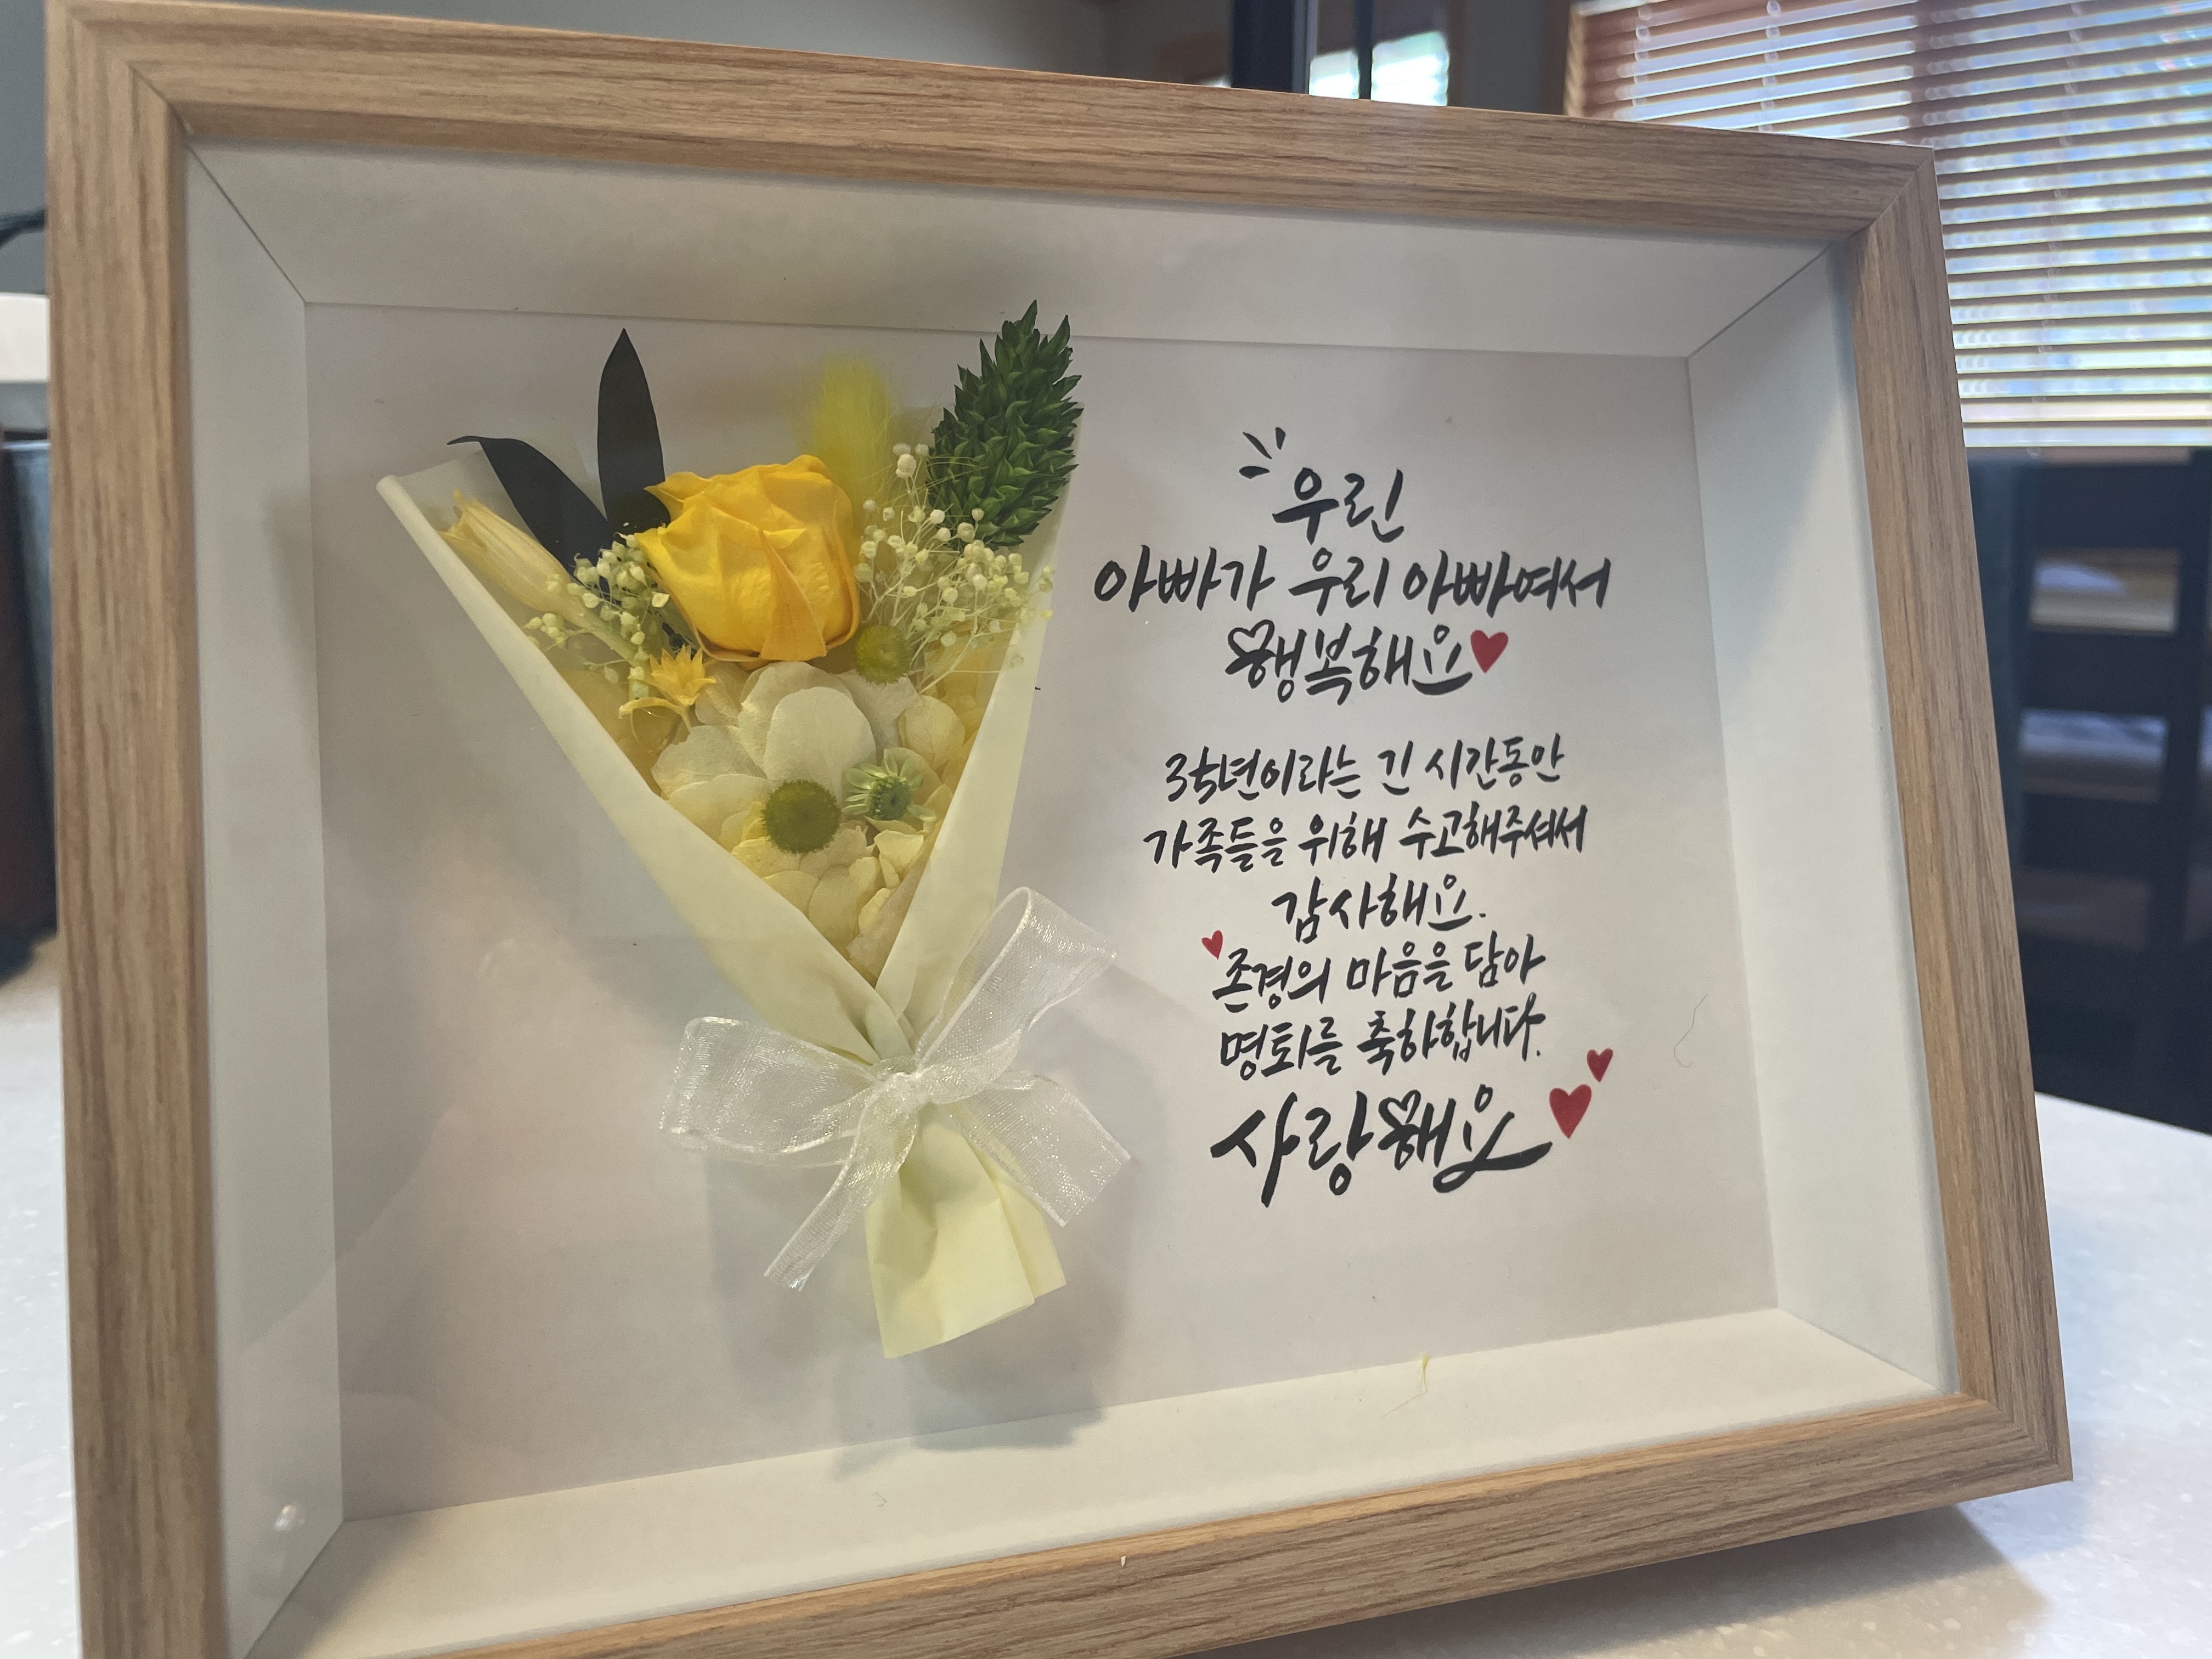 우린
아빠가 우리 아빠여서
행복해요
35년이라는 긴 시간동안
가족들을 위해 수고해주셔서
감사해요.
존경의 마음을 담아
명퇴를 축하합니다.
사랑해요